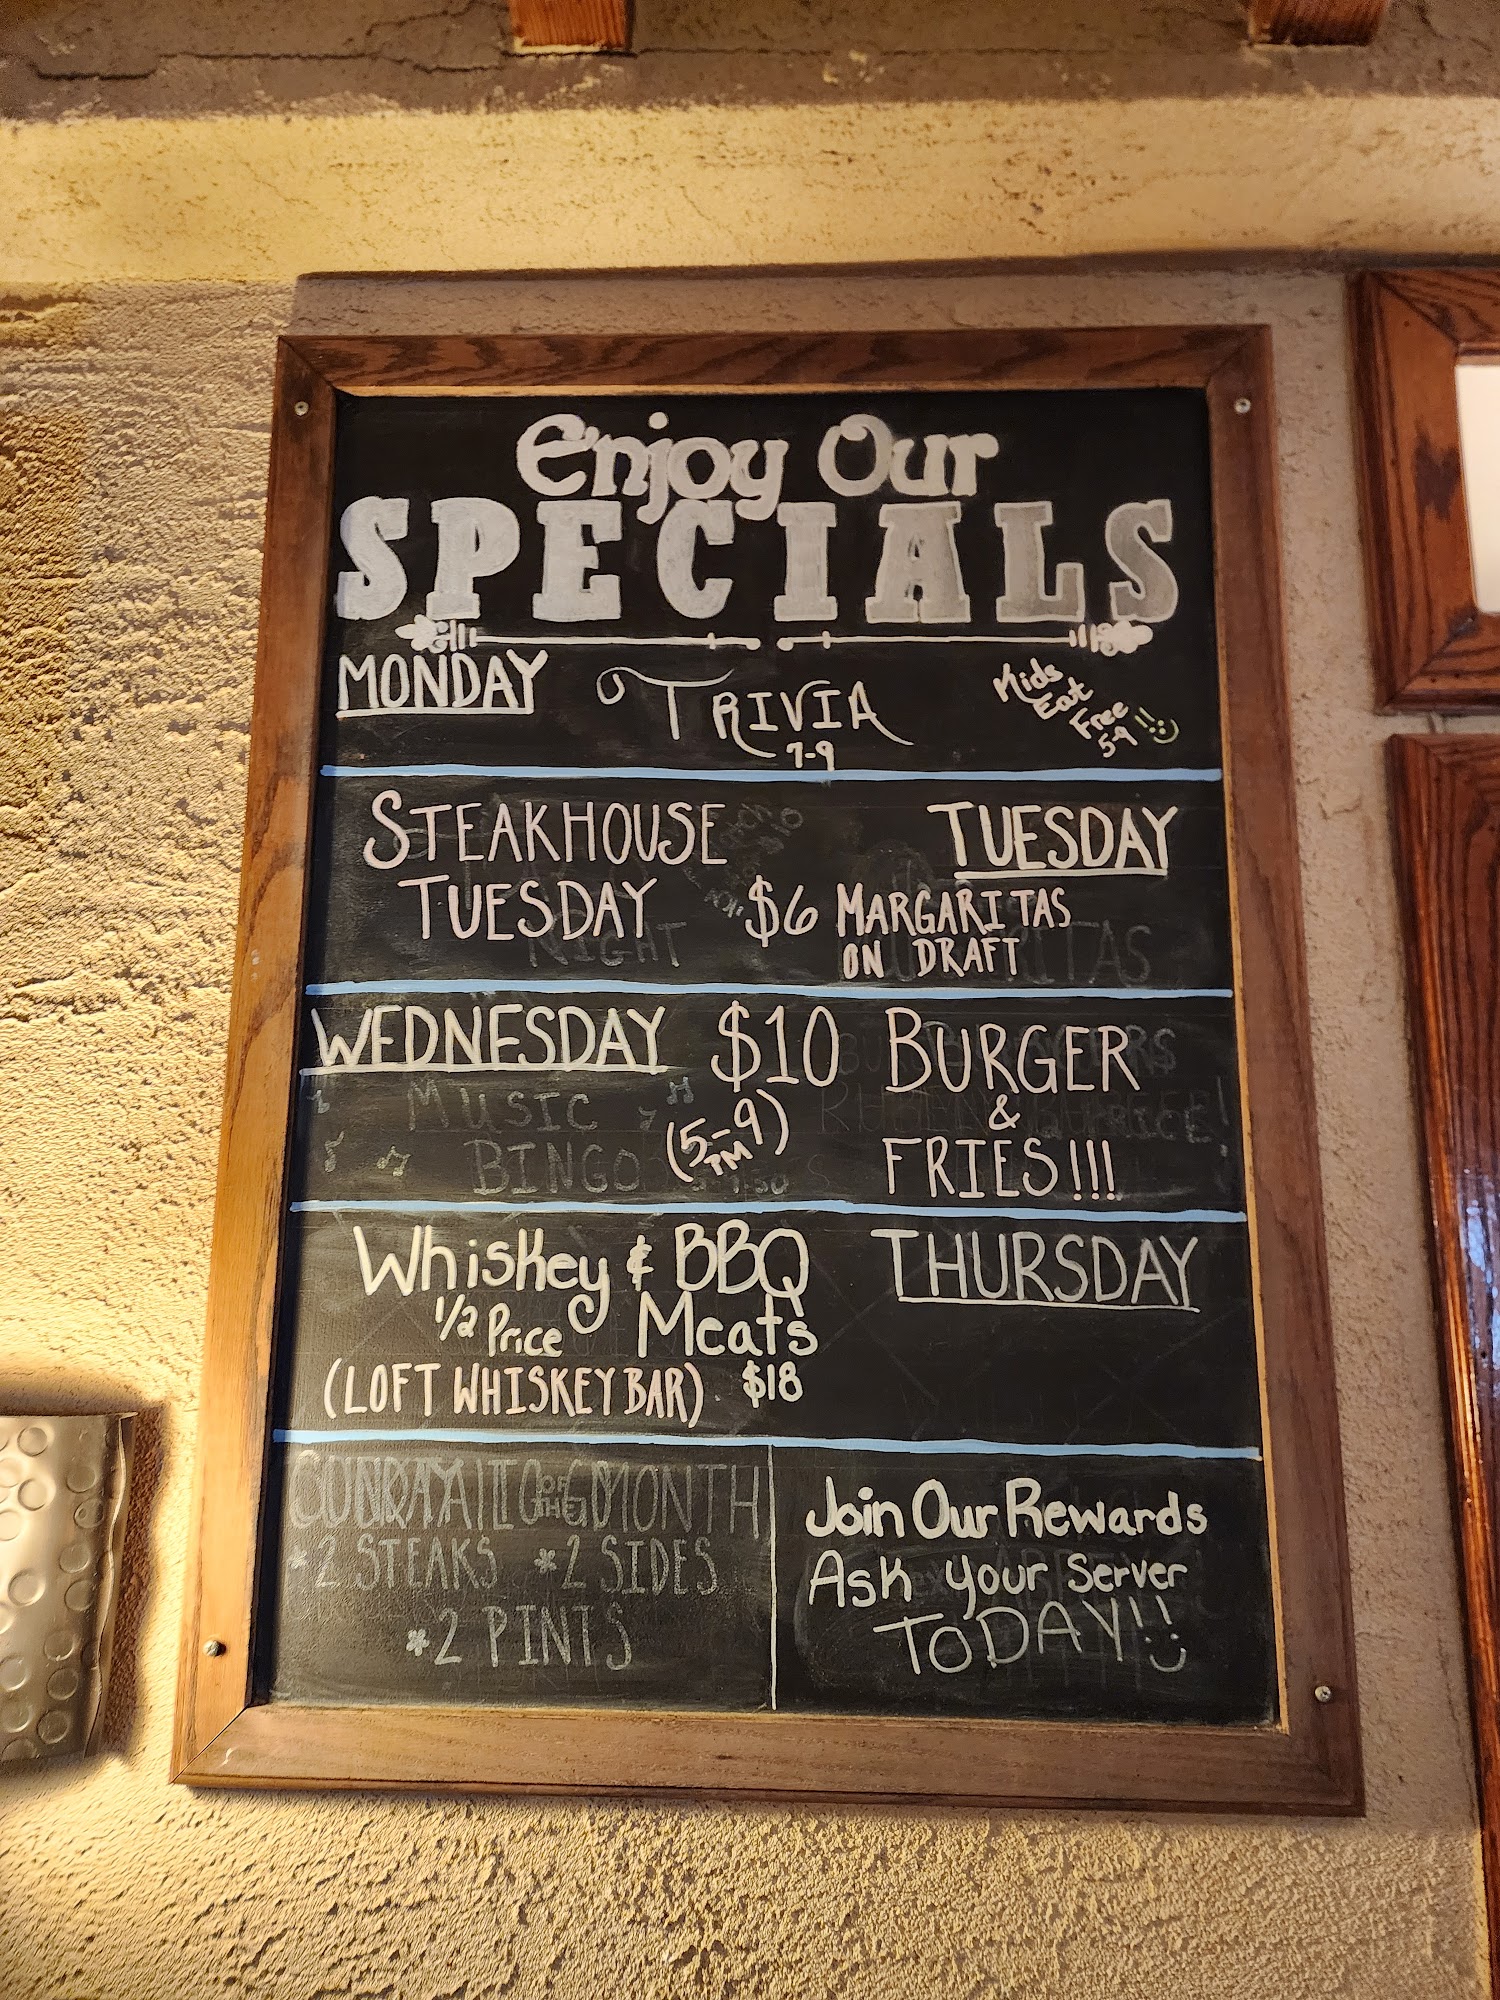 Enjoy Our
SPECIALS
MONDAY
TRIVIA
7-9
Kids
Eat
Free
5-9
STEAKHOUSE
TUESDAY
TUESDAY
$6 MARGARITAS
ON DRAFT
NIGHT
WEDNESDAY
$10 BURGER
&
FRIES!!!
(5-9)
PM
MUSIC
BINGO
Whiskey & BBQ
1/2 Price Meats
(LOFT WHISKEY BAR) $18
THURSDAY
OF THE MONTH
*2 STEAKS *2 SIDES
*2 PINTS
Join Our Rewards
Ask your Server
TODAY!!